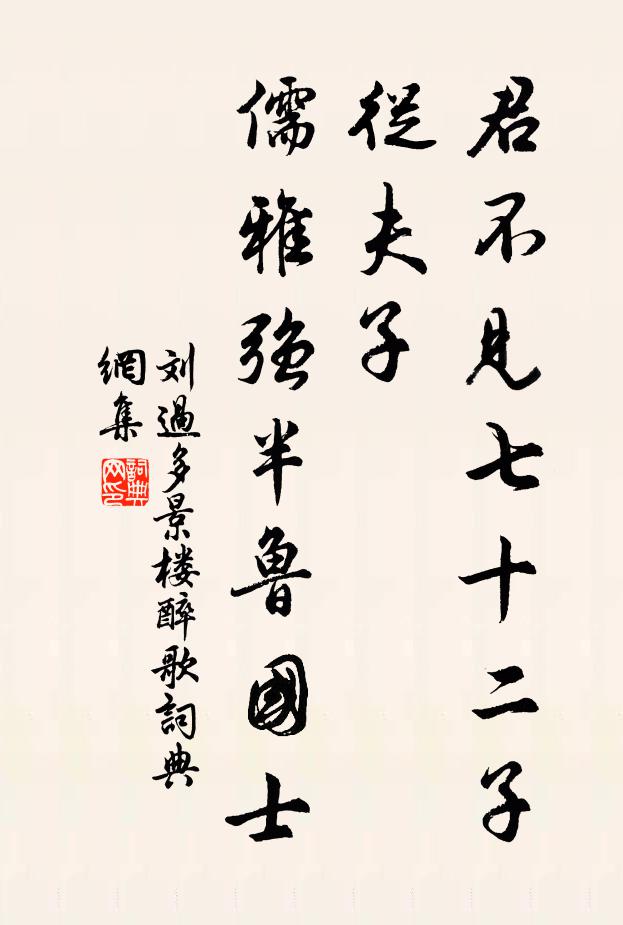 君不見七十二子
從夫子
儒雅強半魯國士
刘過多景楼醉歌詞典
網集
詞典
网印